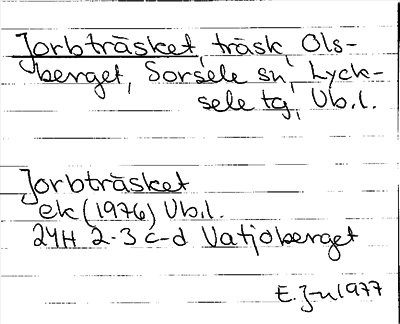 Jorbträsket, träsk, Ols-
berget, Sorsele sn, Lyck-
sele tg, Vb.l.
Jorbträsket
ek (1976) Vb.l.
24H 2-3 c-d Vatjoberget
E. J-n 1977